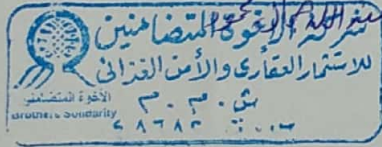 شركة الاخوة المتضامنين
للاستثمار العقارى والأمن الغذائى
ش . م . م
الأخوة المتضامنين
Brothers Solidarity
س.ت ٢٨٦٨٣